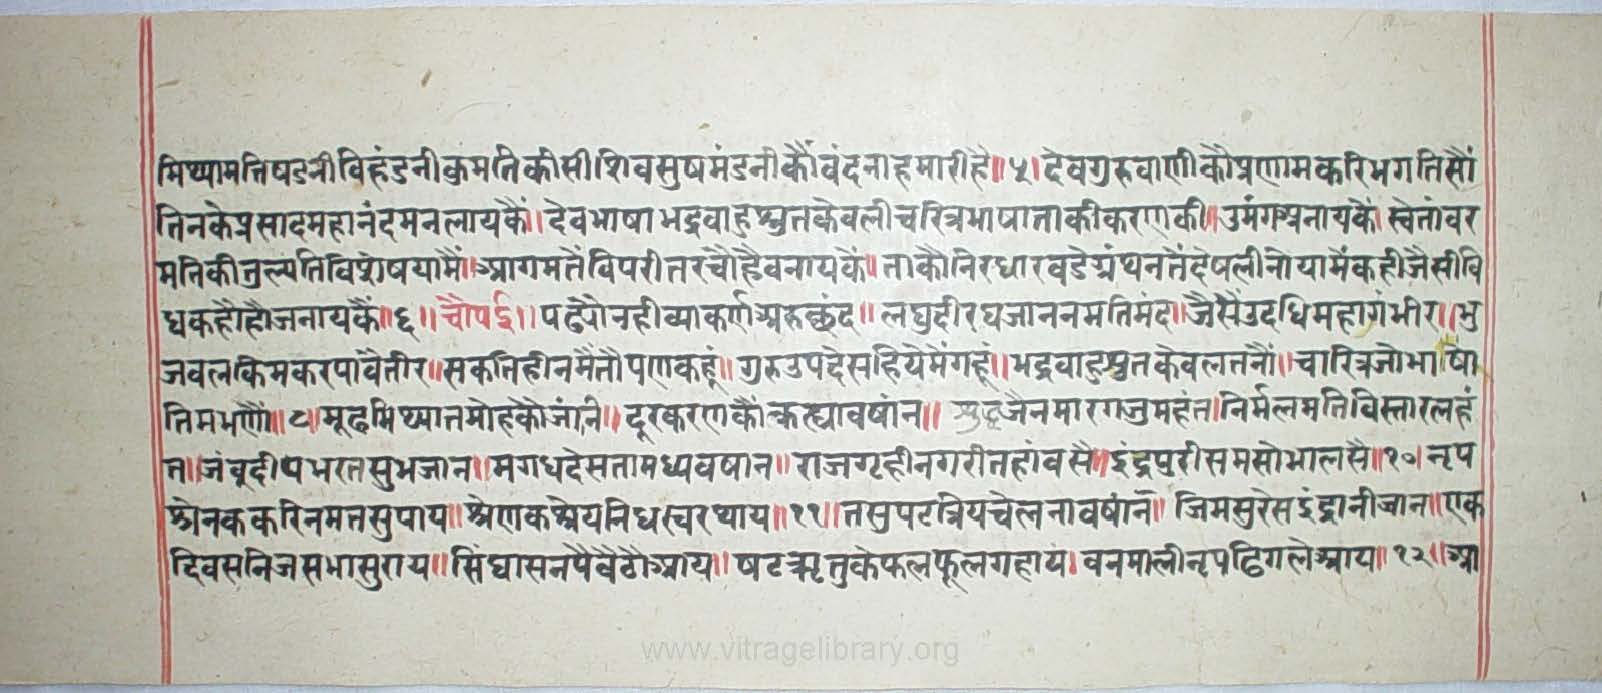 मिथ्यामतिषडनीविहंडनीकुमतिकीसीशिवसुषमंडनीकौंवंदनाहमारीहै॥५।देवगुरुवाणीकौप्रणामकरिभगतिसौं
तिनकेप्रसादमहानंदमनलायकैं॥देवभाषाभद्रवाहुश्रुतकेवलीचरित्रभाषाताकीकरणकी॥उमंगउपनायकैं।स्वेतांवर
मतिकीतुल्पतिविशेषयामैं॥आगमतैंविपरीतरचौहैवनायकें॥ताकौनिरधारवडेग्रंथनतैंदेषलीनोयामैंकहीजैसीवि
धकहौहौजनायकैं॥६॥चौपई॥पढ्यौनहीव्याकर्णअरुछंद॥लघुदीरघजाननमतिमंद॥जैसैंउदधिमहागंभीर॥भु
जवलकिमकरपावैतीर॥सकतिहीनमैंतौपणकहूं॥गुरुउपदेसहियेमैंगहूं॥भद्रवाहुश्रुतकेवलतनौं॥चारित्रजोभाषा
तिमभणौं॥८॥मूढमिथ्यातमोहकौजांनि॥दूरकरणकौंकह्यावषांन॥शुद्धजैनमारगजुमहंत।निर्मलमतिविस्तारलहं
त॥जंवूदीपभरतसुभजान॥मगधदेसतामध्यवषान॥राजगृहीनगरीतहांवसै॥इंद्रपुरीसमसोभालसै॥१०।नृप
श्रेनककरिनमतसुपाय॥श्रेणकश्रेयनिधस्वरथाय॥११॥तसुपटत्रियचेलनावषांन॥जिमसुरेसइंद्रानीजान॥एक
दिवसनिजसभासुराय॥सिंघासनपैवैठौआय॥षटऋतुकेफलफूलगहाय।वनमालीनृपढिगलेआय॥१२॥आ